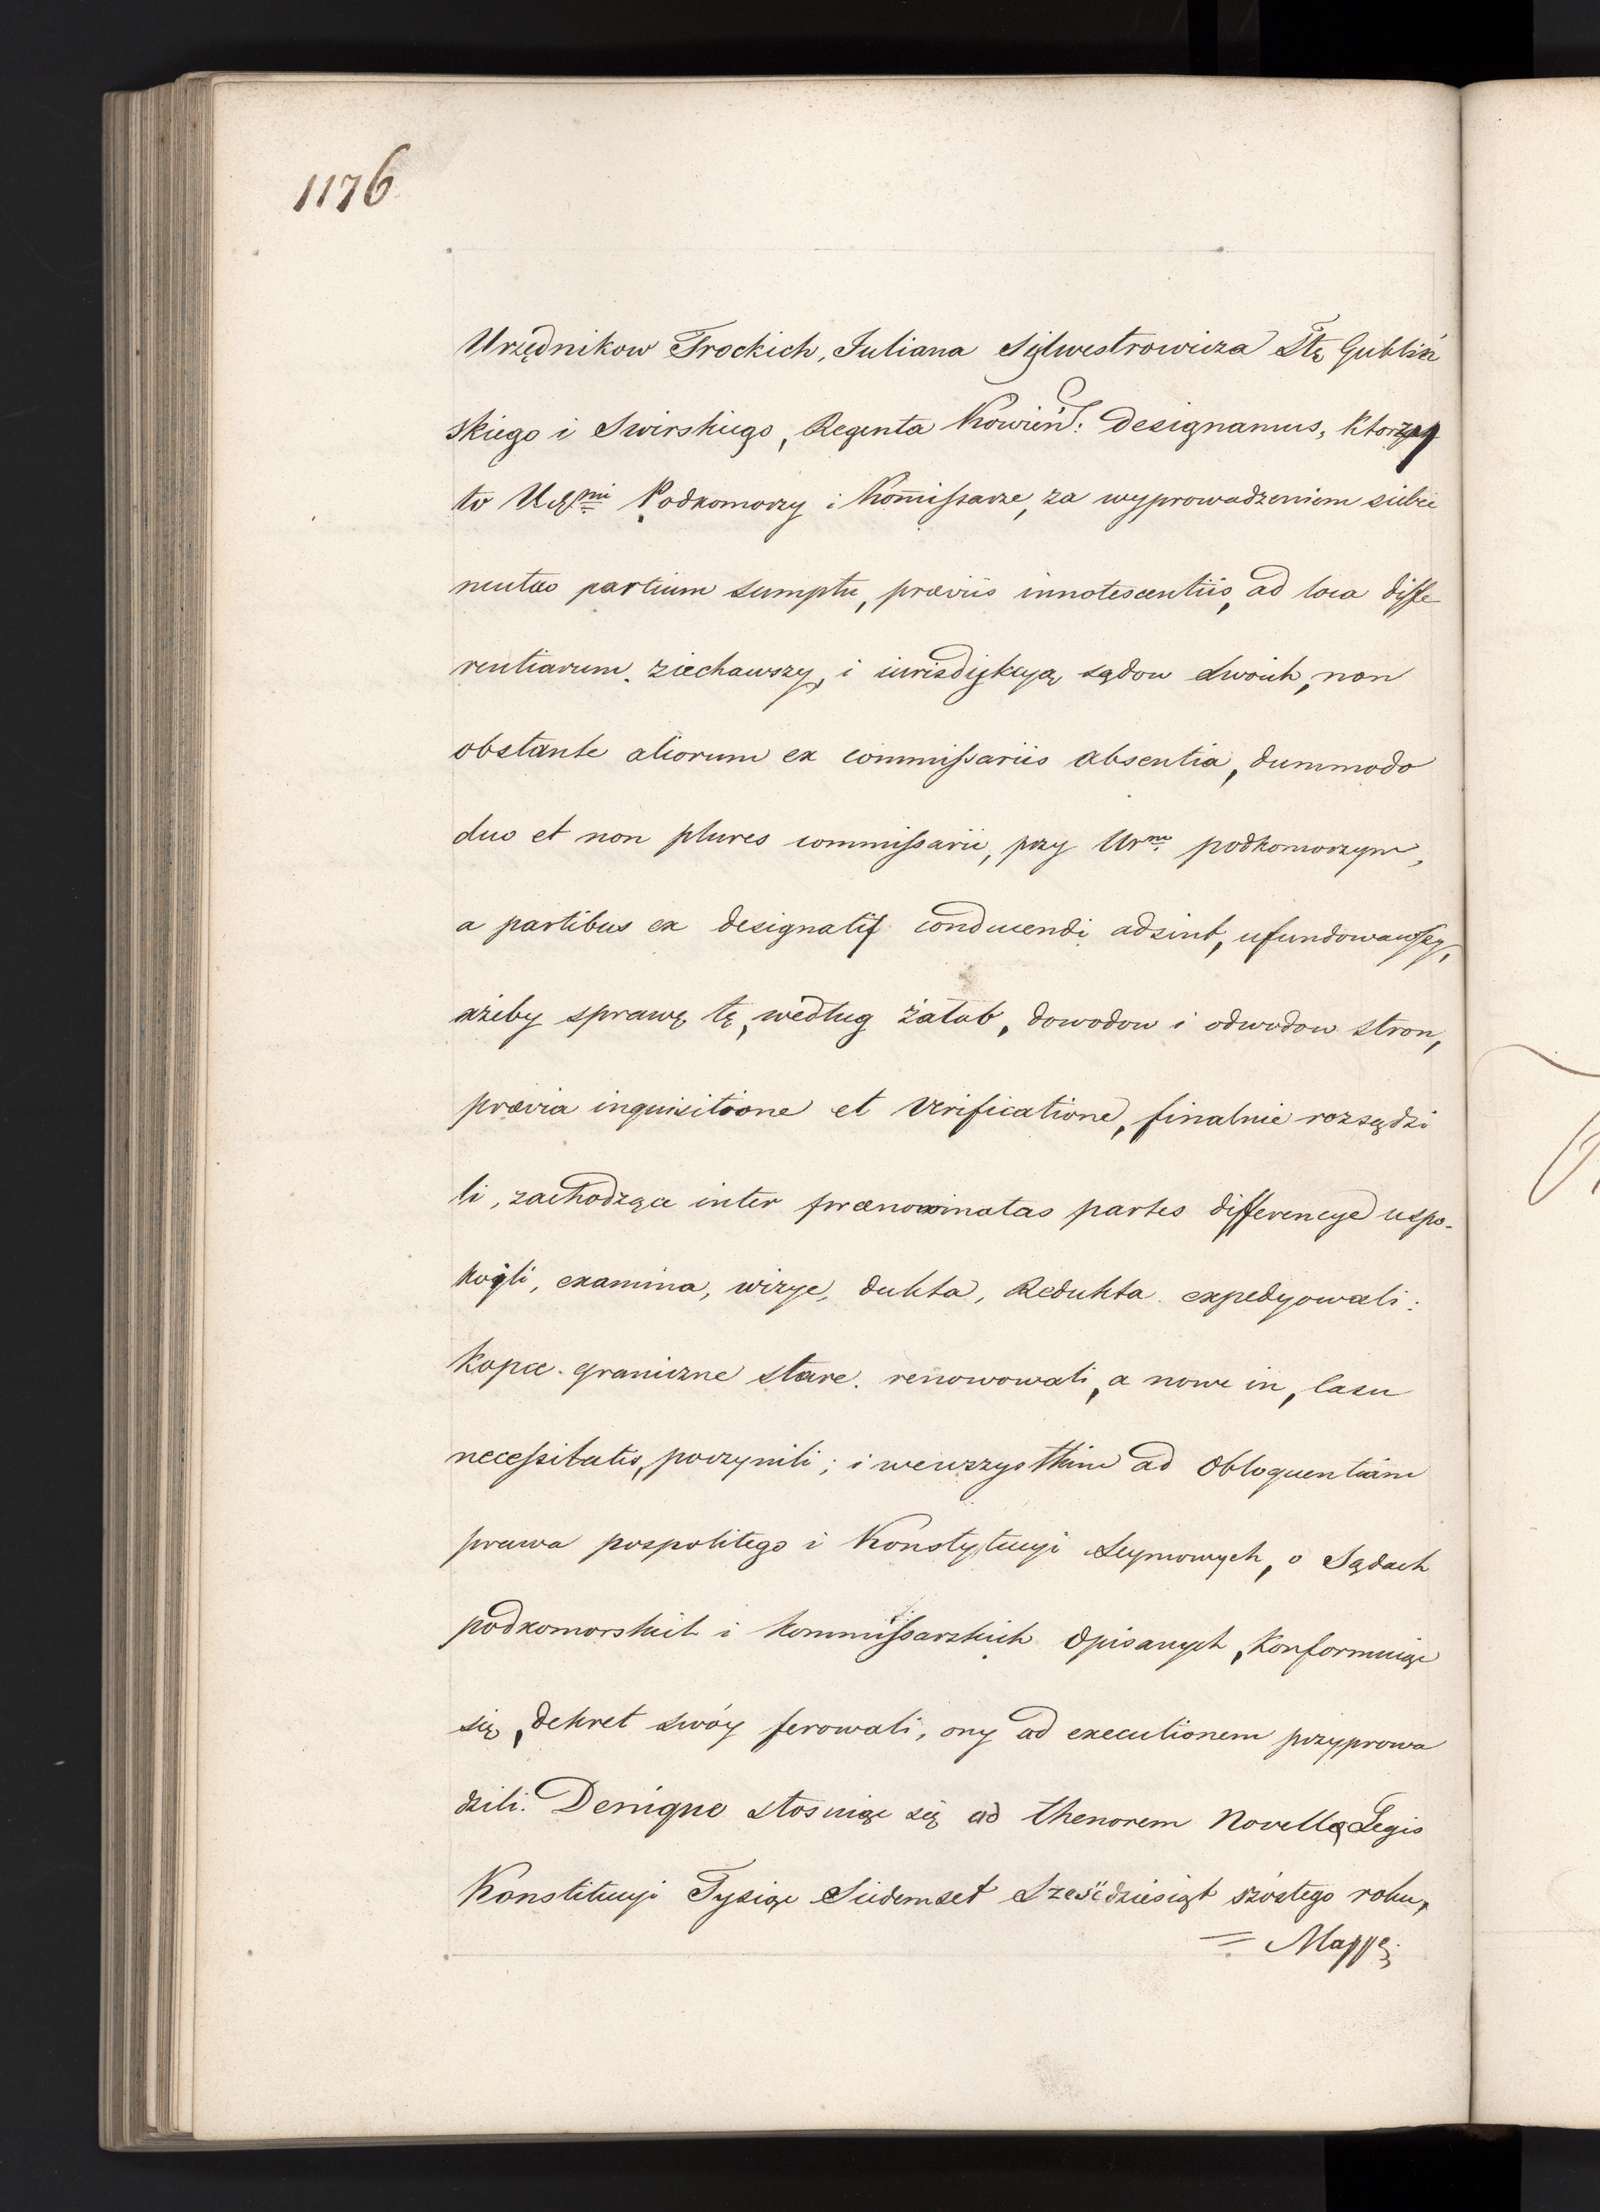 1176
Urzędnikow Trockich, Juliana Sylwestrowicza Stę Gubliń
skiego i Swirskiego, Regenta Kowień: designamus, ktorzy
to Urpni Podkomorzy i Kom̄issarze, za wyprowadzeniem siebie
mutuo partium sumptu, præviis innotescentiis, ad loca diffe
rentiarum ziechawszy, i iurisdiykcyą sądow swoich, non
obstante aliorum ex commissariis absentia, dummodo
duo et non plures commissarii, przy Urm podkomorzym,
a partibus ex designatis conducendi adsint, ufundowawszy,
ażeby sprawę tę, według żałob, dowodow i odwodow stron,
prævia inquisitione et verificatione, finalnie rozsądzi
li, zachodzące inter prænominatas partes differencye uspo-
koili, examina, wizye, dukta, Redukta expedyowali:
kopce graniczne stare renowowali, a nowe in, casu
necessitatis, poczynili; i wewszystkim ad obloquentiam
prawa pospolitego i Konstytucyi Seymowych, o Sądach
podkomorskich i kommissarskich opisanych, Konformuiąc
się, dekret swóy ferowali, ony ad executionem przyprowa
dzili. Denique stosuiąc się ad thenorem Novellæ Legis
Konstitucyi Tysiąc Siedemset Sześćdziesiąt szóstego roku,
= Mappę